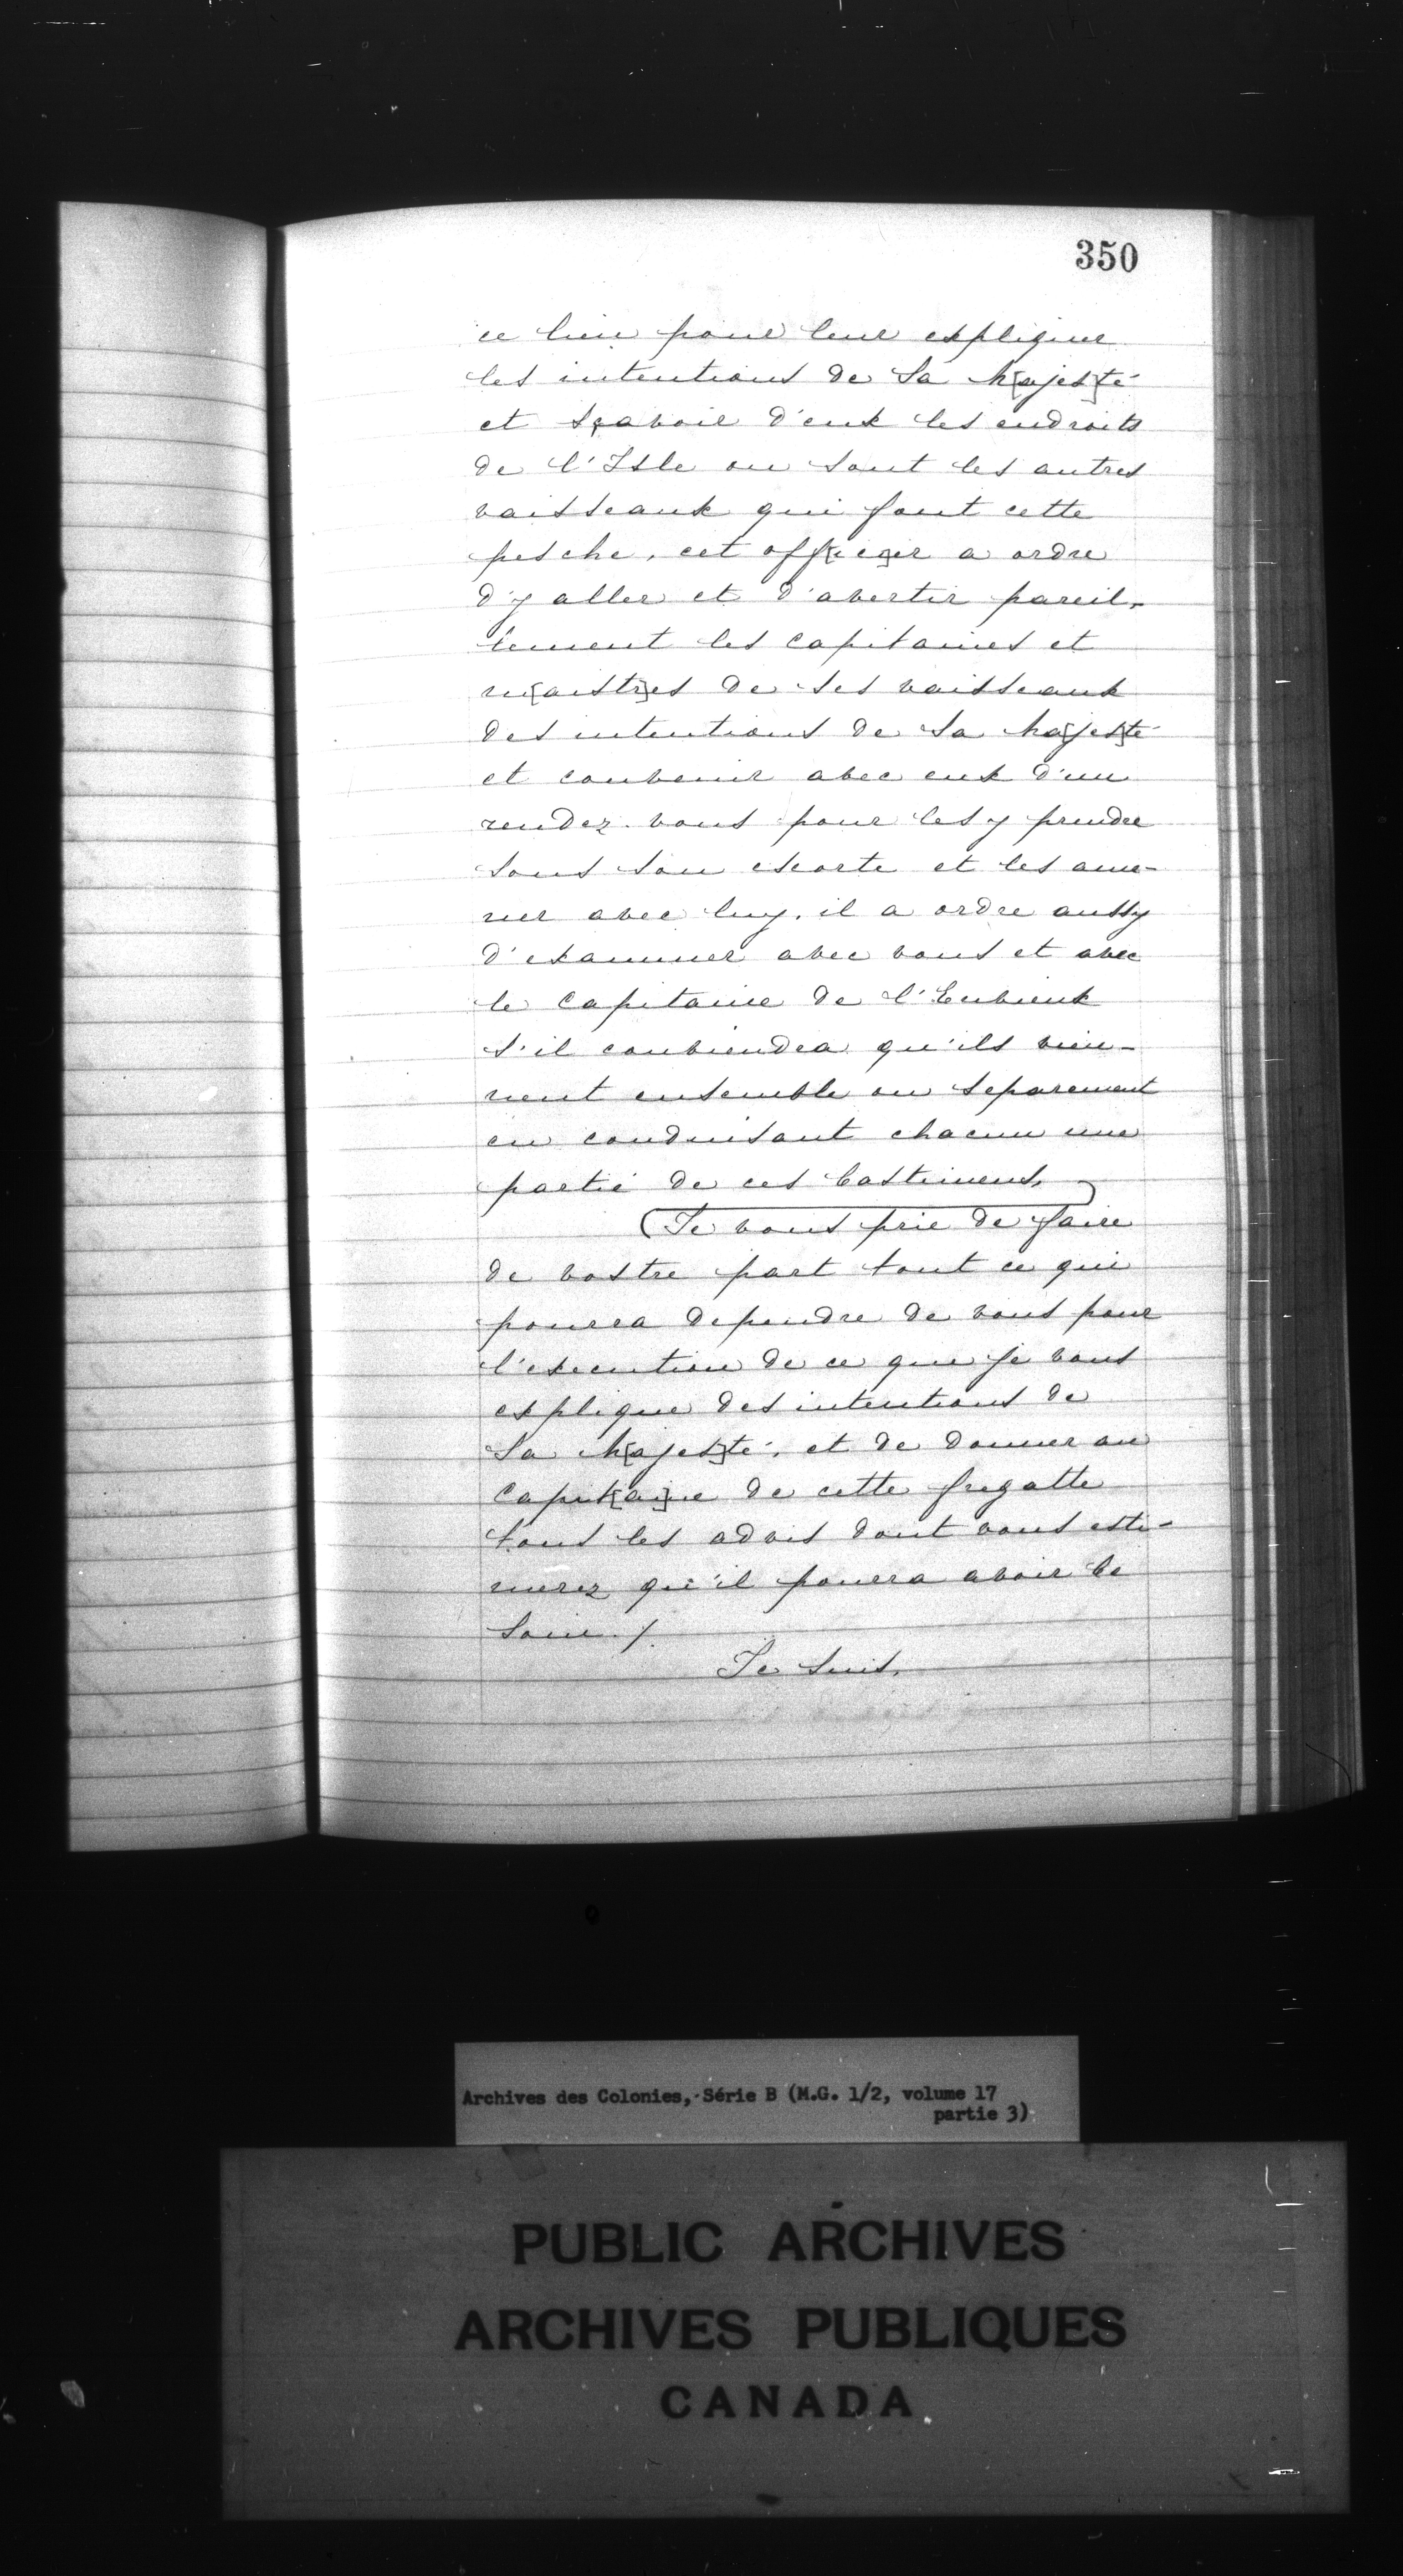 350
ce lieu pour leur expliquer
les intentions de Sa M[ajes]té
et sçavoir d'eux les endroits
de l'Isle ou sont les autres
vaisseaux qui font cette
pesche, cet off[ici]er a ordre
d'y aller et d'avertir pareil-
lement les capitaines et
m[aistr]es de ses vaisseaux
des intentions de Sa Ma[jes]té
et convenir avec eux d'un
rendez-vous pour les y prendre
sous son escorte et les ame-
ner avec luy. il a ordre aussy
d'examiner avec vous et avec
le Capitaine de l'Envieux
s'il conviendra qu'ils vien-
nent ensemble ou separement
en conduisant chacun une
partie de ces bastimens,
(Je vous prie de faire
de vostre part tout ce qui
pourra dependre de vous pour
l'execution de ce que je vous
explique des intentions de
Sa M[ajes]té, et de donner au
Capit[ai]ne de cette fregatte
tous les advis dont vous esti-
merez qu'il pourra avoir be
soin. /.
Je suis,
Archives des Colonies, Série B (M.G. 1/2, volume 17
partie 3)
PUBLIC ARCHIVES
ARCHIVES PUBLIQUES
CANADA